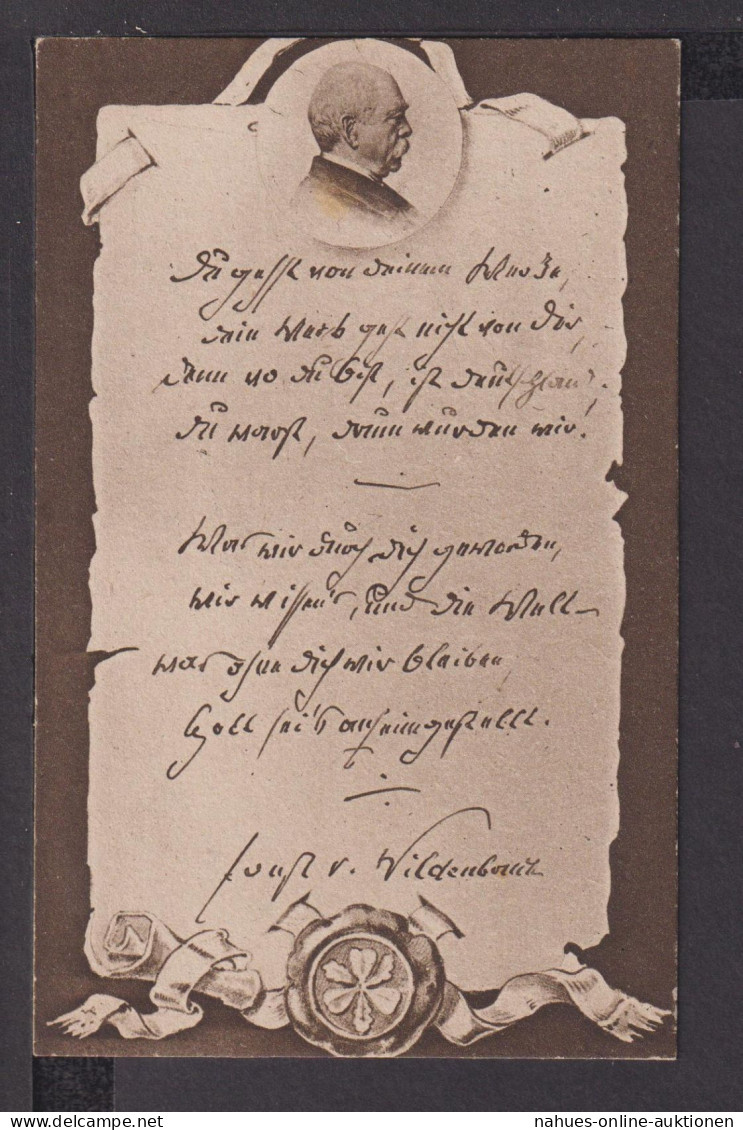 Du gehst von deinem Werke,
dein Werk geht nicht von dir,
denn wo du bist, ist Deutschland,
du warst, drum wurden wir.
Was wir durch dich geworden,
wir wissen's, und die Welt –
was ohne dich wir bleiben,
Gott sei's anheimgestellt.
Ernst v. Wildenbruch
nahues-online-auktionen